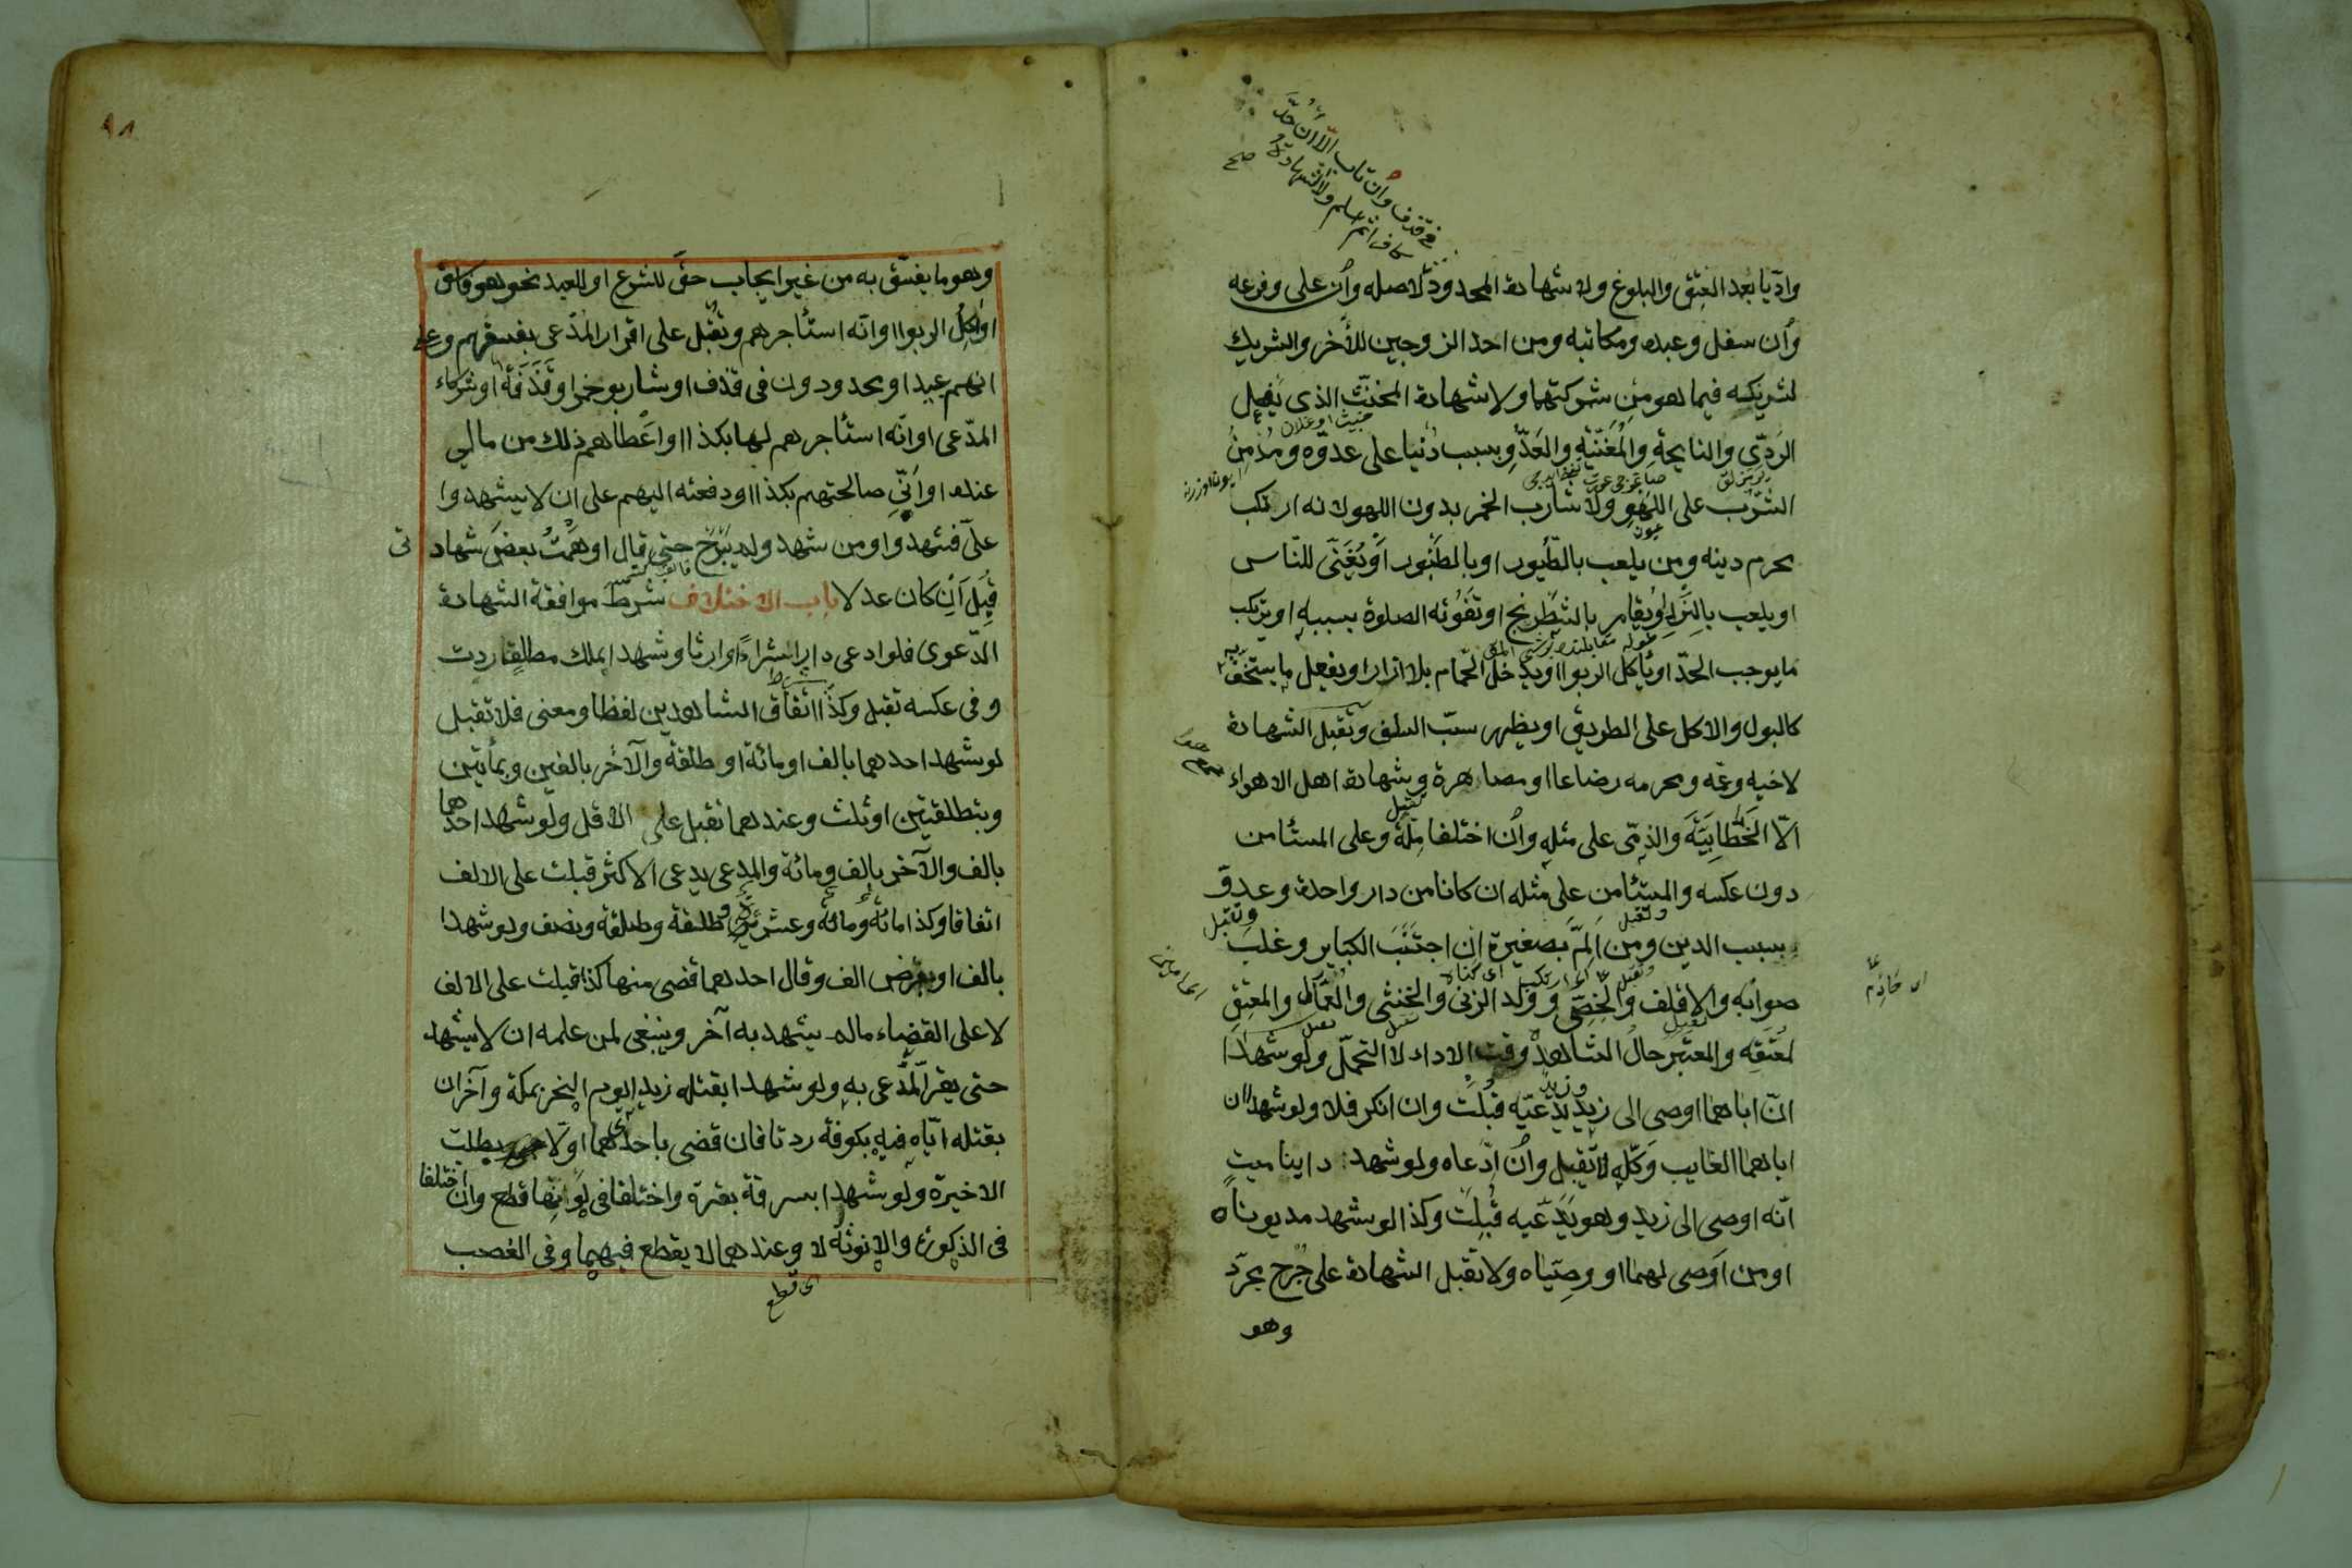 في قذف وان تاب الا ان حد
كافرا ثم اسلم ولا الشهادة
صح
وادّيا بعد العتق والبلوغ ولا شهادة المحدود لاصله وان على وفرعه
وان سفل وعبده ومكاتبه ومن احد الزوجين للآخر والشريك
لشريكه فيما هو من شركتهما ولا شهادة المخنث الذى يفعل
الردّى والنايحة والمغنّية والعدّو بسبب دنيا على عدوّه ومدمن
الشرب على اللهو ولا شارب الخمر بدون اللهو لانه ارتكب
محرم دينه ومن يلعب بالطّيور او بالطنبور او يغنّى للنّاس
او يلعب بالنرد او يقامر بالشطرنج او تفوته الصلوة بسببه او يرتكب
ما يوجب الحدّ او يأكل الربوا او يدخل الحمّام بلا ازار او يفعل ما يستخف
كالبول والاكل على الطريق او يظهر سبّ السلف وتقبل الشهادة
لاخيه وعمه ومحرمه رضاعا او مصاهرة وشهادة اهل الاهواء
الّا الخطّابيّة والذمّى على مثله وان اختلفا ملّة وعلى المستأمن
دون عكسه والمستأمن على مثله ان كانا من دار واحدة وعدوّ
بسبب الدين ومن المّ بصغيرة ان اجتنب الكباير وغلب
صوابه والاقلف والخصّى وولد الزنى والخنثى والعمّال والمعتق
لمعتقه والمعتبر حال الشاهد وقت الاداء لا التحمّل ولو شهدا
انّ اباهما اوصى الى زيد وزيد يدّعيه قبلت وان انكر فلا ولو شهدا ان
اباهما الغايب وكّله لا تقبل وان ادّعاه ولو شهد داينا ميت
انّه اوصى الى زيد وهو يدّعيه قبلت وكذا لو شهد مديوناه
او من اوصى لهما او وصيّاه ولا تقبل الشهادة على جرح مجرّد
وهو
٩٨
وهو ما يفسّق به من غير ايجاب حقّ للشرع او للعبد نحو هو فاسق
او آكل الربوا او انّه استأجرهم وتقبل على اقرار المدّعى بفسقهم وعلى
انهم عبيد او محدودون فى قذف او شاربو خمر او قذفة او شركاء
المدّعى او انّه استأجرهم لها بكذا او اعطاهم ذلك من مالى
عنده او انّى صالحتهم بكذا او دفعته اليهم على ان لا يشهدوا
علىّ فشهدوا ومن شهد ولم يبرح حتى قال اوهمت بعض شهادتى
قبل ان كان عدلا باب الاختلاف شرط موافقة الشهادة
الدّعوى فلو ادعى دارا شراءً او ارثا وشهدا بملك مطلق ردت
وفى عكسه تقبل وكذا اتفاق الشاهدين لفظا ومعنى فلا تقبل
لو شهد احدهما بالف او مائة او طلقة والآخر بالفين وبمأتين
وبتطلقتين او ثلث وعندهما تقبل على الاقل ولو شهد احدهما
بالف والآخر بالف ومائة والمدعى يدعى الاكثر قبلت على الالف
اتفاقا وكذا مائة ومائة وعشرة وطلقة وطلقة ونصف ولو شهدا
بالف او بقرض الف وقال احدهما قضى منها كذا قبلت على الالف
لا على القضاء ماله يشهد به آخر وينبغى لمن علمه ان لا يشهد
حتى يقر المدّعى به ولو شهدا بقتله زيدا يوم النحر بمكة وآخران
بقتله ايّاه فيه بكوفة ردتا فان قضى باحدٰهما اوّلا بطلت
الاخيرة ولو شهدا بسرقة بقرة واختلفا فى لونها قطع وان اختلفا
فى الذكورة والانوثة لا وعندهما لا يقطع فيهما وفى الغصب
اى قطع